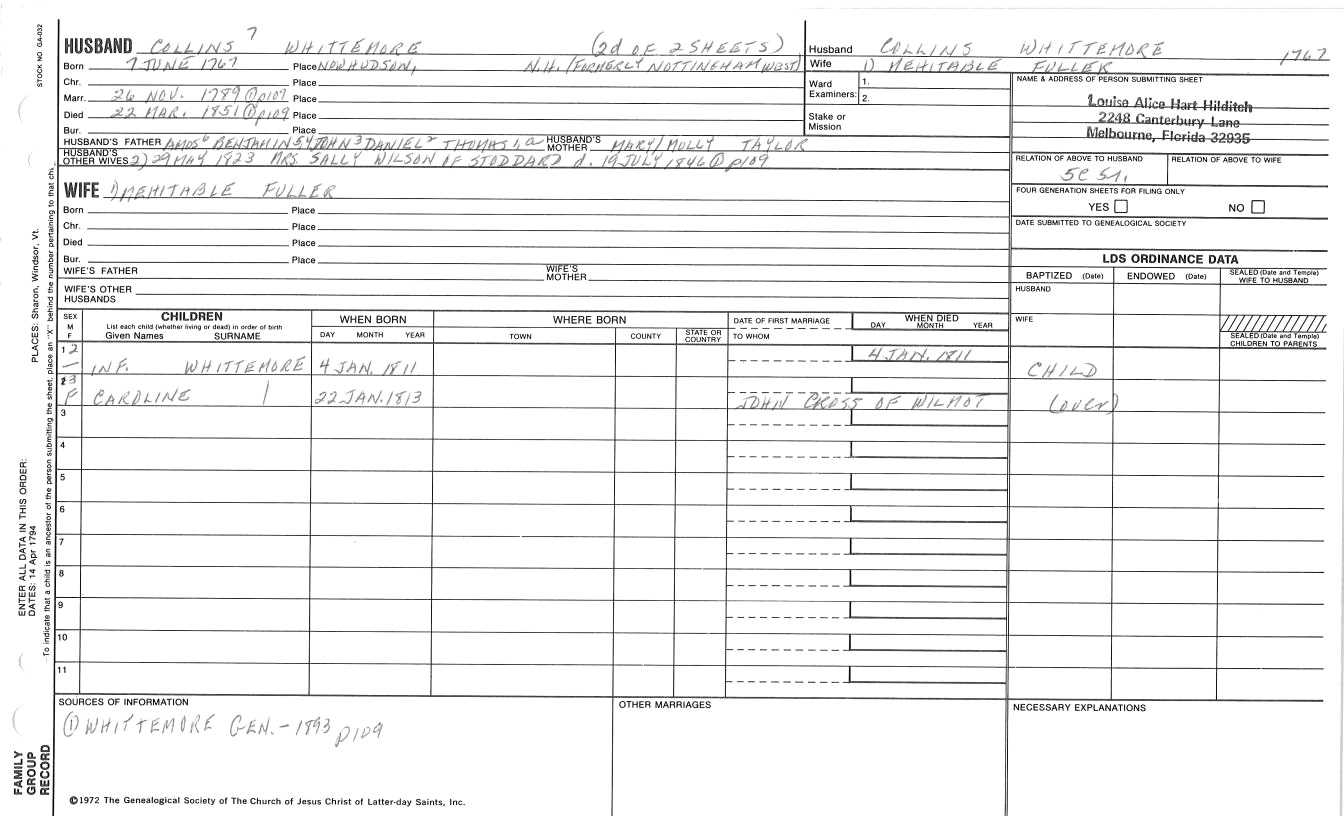 STOCK NO. GA-032
PLACES: Sharon, Windsor, Vt.
ENTER ALL DATA IN THIS ORDER:
DATES: 14 Apr 1794
To indicate that a child is an ancestor of the person submitting the sheet, place an "X" behind the number pertaining to that ch.
FAMILY GROUP RECORD
HUSBAND COLLINS 7 WHITTEMORE (2d OF 2 SHEETS)
Born 7 JUNE 1767 Place NOW HUDSON, N.H. (FORMERLY NOTTINGHAM WEST)
Chr. Place
Marr. 26 NOV. 1789 ① p109 Place
Died 22 MAR. 1851 ① p109 Place
Bur. Place
HUSBAND'S FATHER AMOS 6 BENJAMIN 5,4 JOHN 3 DANIEL 2 THOMAS 1, a HUSBAND'S MOTHER MARY/MOLLY TAYLOR
HUSBAND'S OTHER WIVES 2) 29 MAY 1823 MRS. SALLY WILSON OF STODDARD d. 19 JULY 1846 ① p109
WIFE 1) MEHITABLE FULLER
Born Place
Chr. Place
Died Place
Bur. Place
WIFE'S FATHER WIFE'S MOTHER
WIFE'S OTHER HUSBANDS
Husband COLLINS WHITTEMORE 1767
Wife 1) MEHITABLE FULLER
Ward Examiners: 1.
2.
Stake or Mission
NAME & ADDRESS OF PERSON SUBMITTING SHEET
Louise Alice Hart Hilditch
2248 Canterbury Lane
Melbourne, Florida 32935
RELATION OF ABOVE TO HUSBAND RELATION OF ABOVE TO WIFE
FOUR GENERATION SHEETS FOR FILING ONLY
YES NO
DATE SUBMITTED TO GENEALOGICAL SOCIETY
LDS ORDINANCE DATA
BAPTIZED (Date) ENDOWED (Date) SEALED (Date and Temple) WIFE TO HUSBAND
HUSBAND
WIFE
SEALED (Date and Temple) CHILDREN TO PARENTS
SEX M F CHILDREN WHEN BORN WHERE BORN DATE OF FIRST MARRIAGE WHEN DIED
List each child (whether living or dead) in order of birth
Given Names SURNAME DAY MONTH YEAR TOWN COUNTY STATE OR COUNTRY TO WHOM DAY MONTH YEAR
1 2 4 JAN. 1811
— INF. WHITTEMORE 4 JAN. 1811 CHILD
2 3
F CAROLINE | 22 JAN. 1813 JOHN CROSS OF WILMOT (over)
3
4
5
6
7
8
9
10
11
SOURCES OF INFORMATION OTHER MARRIAGES NECESSARY EXPLANATIONS
① WHITTEMORE GEN. - 1893 p109
©1972 The Genealogical Society of The Church of Jesus Christ of Latter-day Saints, Inc.